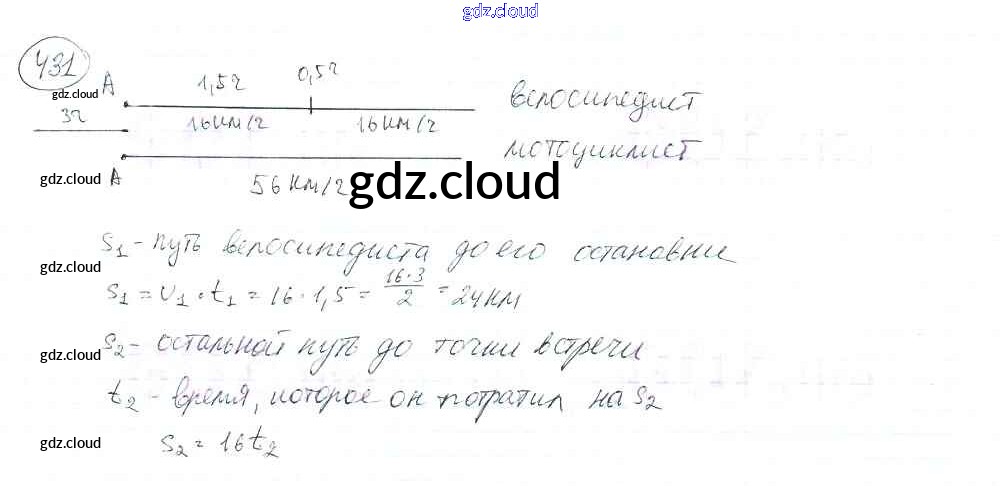 gdz.cloud
431
А 1,5ч 0,5ч велосипедист
gdz.cloud
3ч 16км/ч 16км/ч
мотоциклист
gdz.cloud А 56км/ч gdz.cloud
S₁ - путь велосипедиста до его остановки
gdz.cloud
S₁ = U₁ · t₁ = 16 · 1,5 = 16·3/2 = 24км
S₂ - остальной путь до точки встречи
gdz.cloud
t₂ - время, которое он потратил на S₂
gdz.cloud S₂ = 16t₂